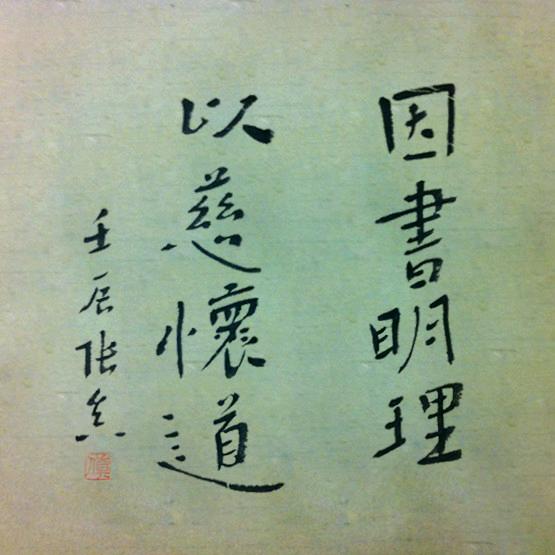 因書明理
以慈懷道
壬辰張